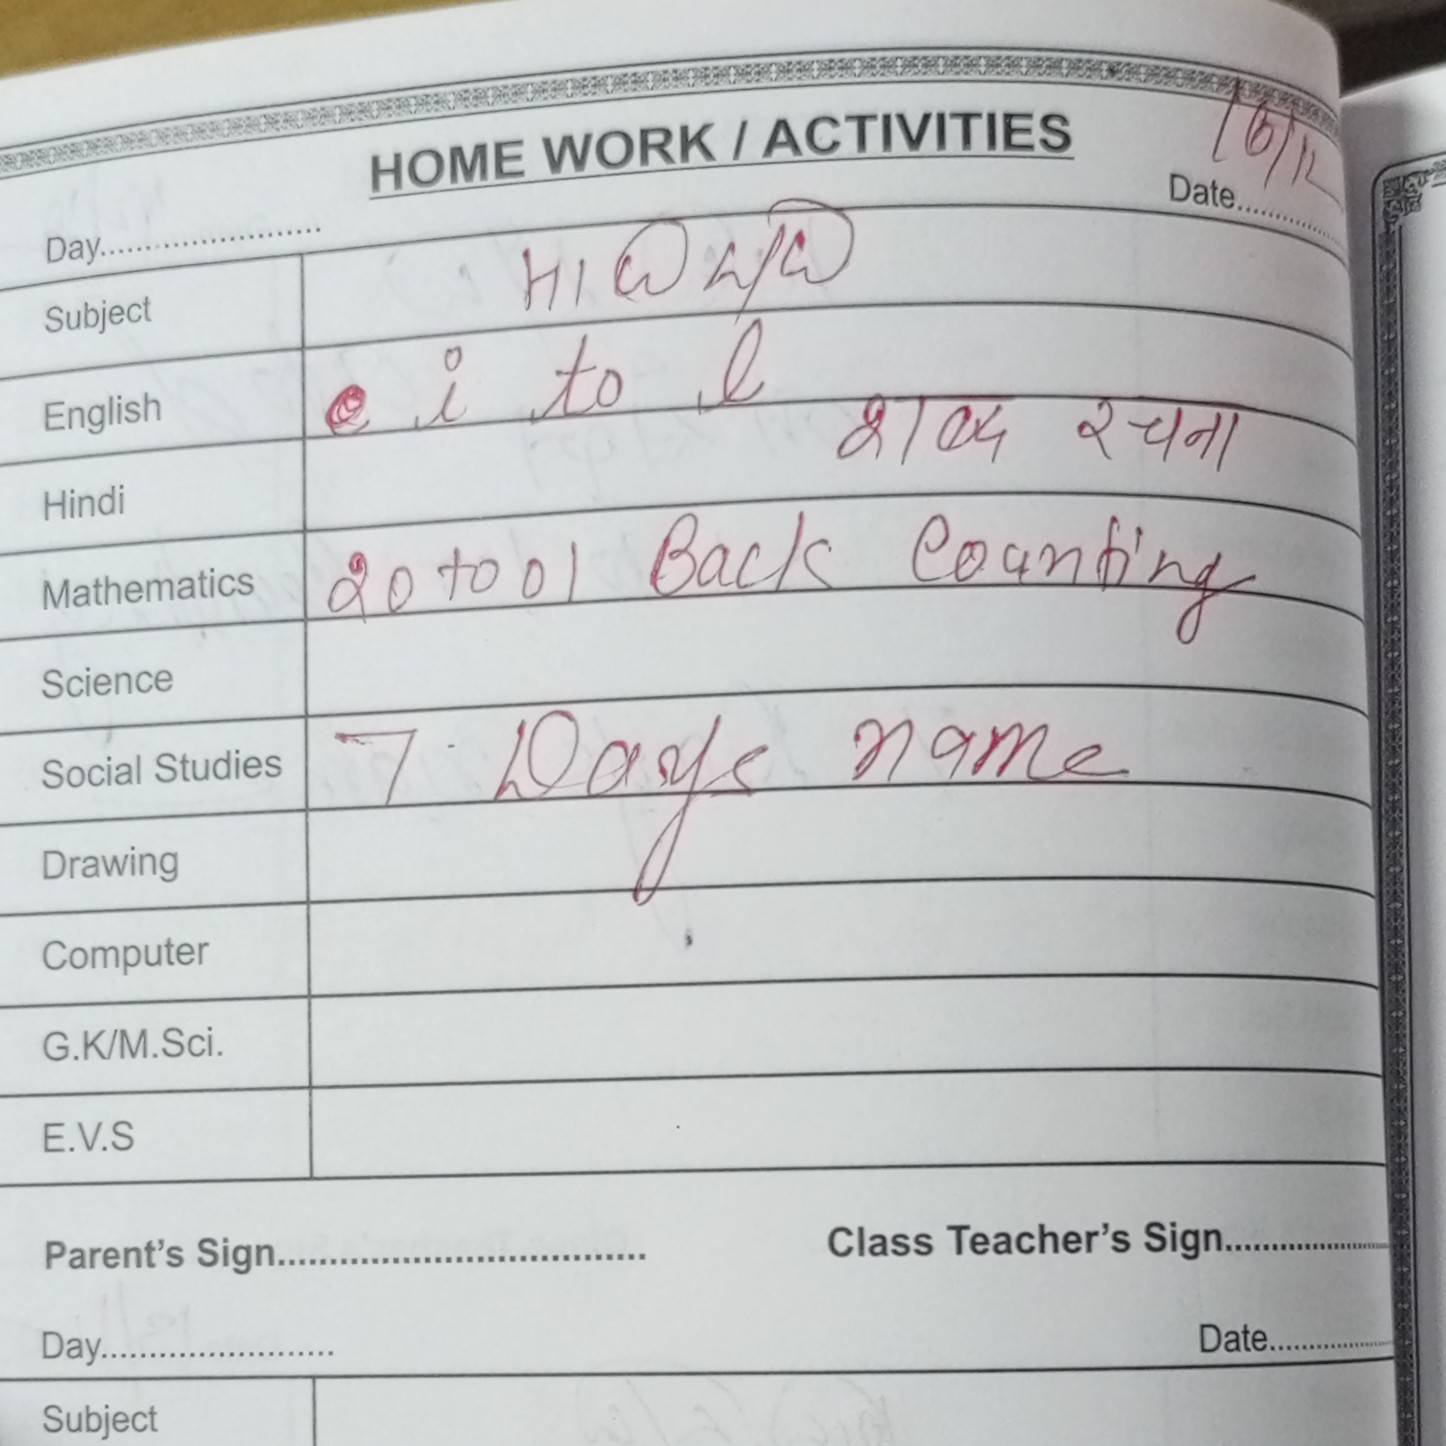 HOME WORK / ACTIVITIES
16/12
Day........................ Date..............
Subject H/W C/W
English i to l
Hindi शब्द रचना
Mathematics 20 to 01 Back Counting
Science
Social Studies 7 Days name
Drawing
Computer
G.K/M.Sci.
E.V.S
Parent's Sign.................................... Class Teacher's Sign................
Day........................ Date..............
Subject